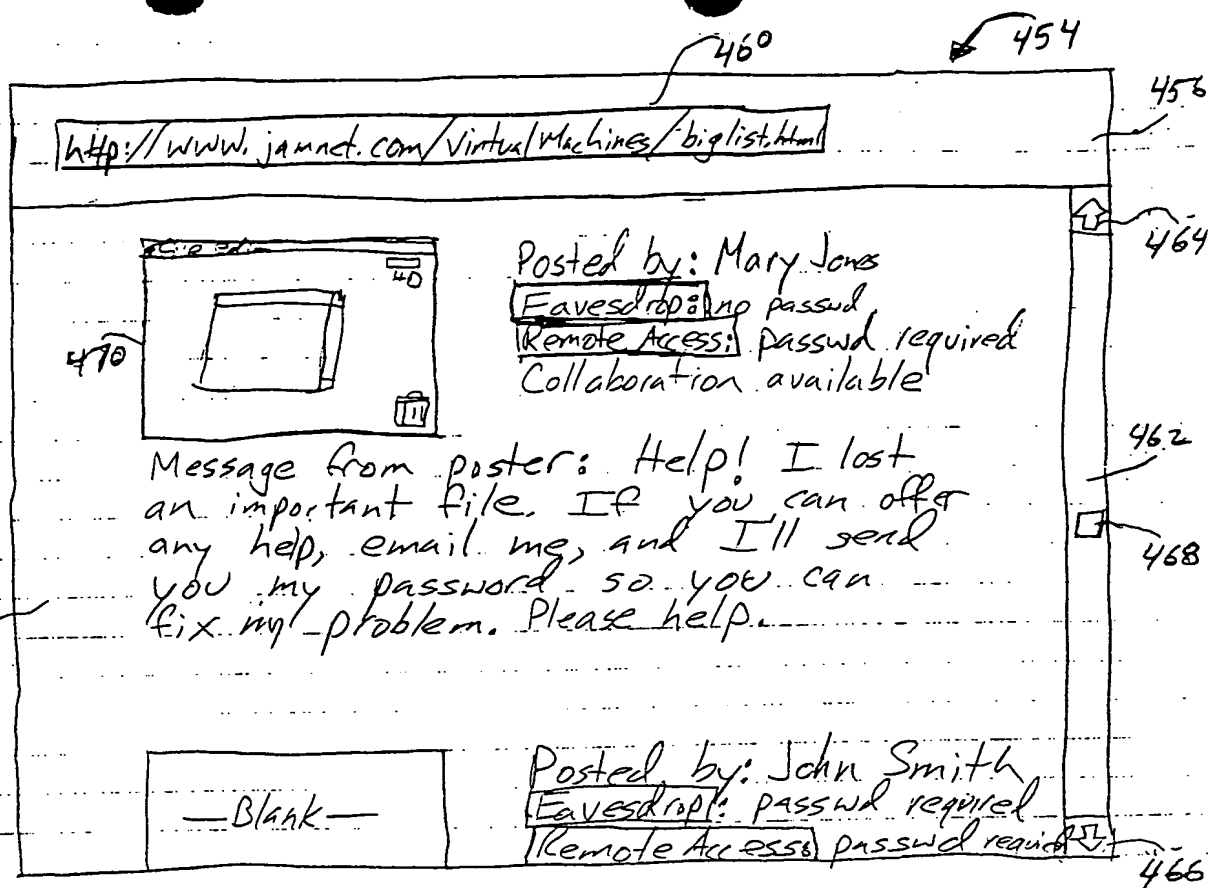 460
454
456
http://www.jamnet.com/VirtualMachines/biglist.html
464
HD
Posted by: Mary Jones
Eavesdrop: no passwd
Remote Access: passwd required
Collaboration available
470
Message from poster: Help! I lost
an important file. If you can offer
any help, email me, and I'll send
you my password so you can
fix my problem. Please help.
462
468
—Blank—
Posted by: John Smith
Eavesdrop: passwd required
Remote Access: passwd required
466